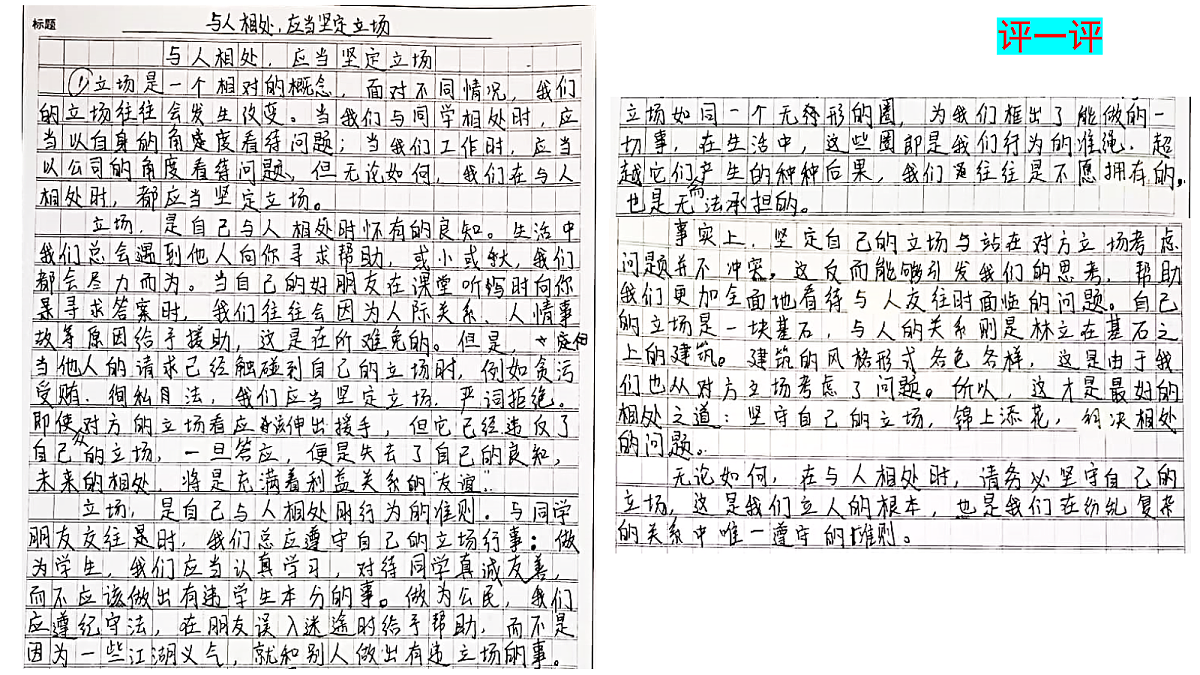 标题
与人相处,应当坚定立场
与人相处,应当坚定立场
①立场是一个相对的概念,面对不同情况,我们
的立场往往会发生改变。当我们与同学相处时,应
当以自身的角度看待问题;当我们工作时,应当
以公司的角度看待问题、但无论如何,我们在与人
相处时,都应当坚定立场。
立场,是自己与人相处时怀有的良知。生活中
我们总会遇到他人向你寻求帮助,或小或大,我们
都会尽力而为。当自己的好朋友在课堂听写时向你
寻求答案时,我们往往会因为人际关系、人情事
故等原因给予援助,这是在所难免的。但是,
当他人的请求已经触碰到自己的立场时,例如贪污
受贿、徇私月法,我们应当坚定立场,严词拒绝。
即使从对方的立场看应该伸出援手,但它已经违反了
自己的立场,一旦答应,便是失去了自己的良知,
未来的相处,将是充满着利益关系的“友谊”.
立场,是自己与人相处的行为的准则。与同学
朋友交往是时,我们总应遵守自己的立场行事:做
为学生,我们应当认真学习,对待同学真诚友善,
而不应该做出有违学生本分的事。做为公民,我们
应遵纪守法,在朋友误入迷途时给予帮助,而不是
因为一些江湖义气,就和别人做出有违立场的事。
评一评
立场如同一个无形的圈,为我们框出了能做的一
切事,在生活中,这些圈即是我们行为的准绳,超
越它们产生的种种后果,我们往往是不愿拥有的,
也是无而法承担的。
事实上,坚定自己的立场与站在对方立场考虑
问题并不冲突。这反而能够引发我们的思考,帮助
我们更加全面地看待与人交往时面临的问题。自己
的立场是一块基石,与人的关系则是林立在基石之
上的建筑。建筑的风格形式各色各样,这是由于我
们也从对方立场考虑了问题。所以,这才是最好的
相处之道:坚守自己的立场,锦上添花,解决相处
的问题。
无论如何,在与人相处时,请务必坚守自己的
立场,这是我们立人的根本,也是我们在纷乱复杂
的关系中唯一遵守的准则。